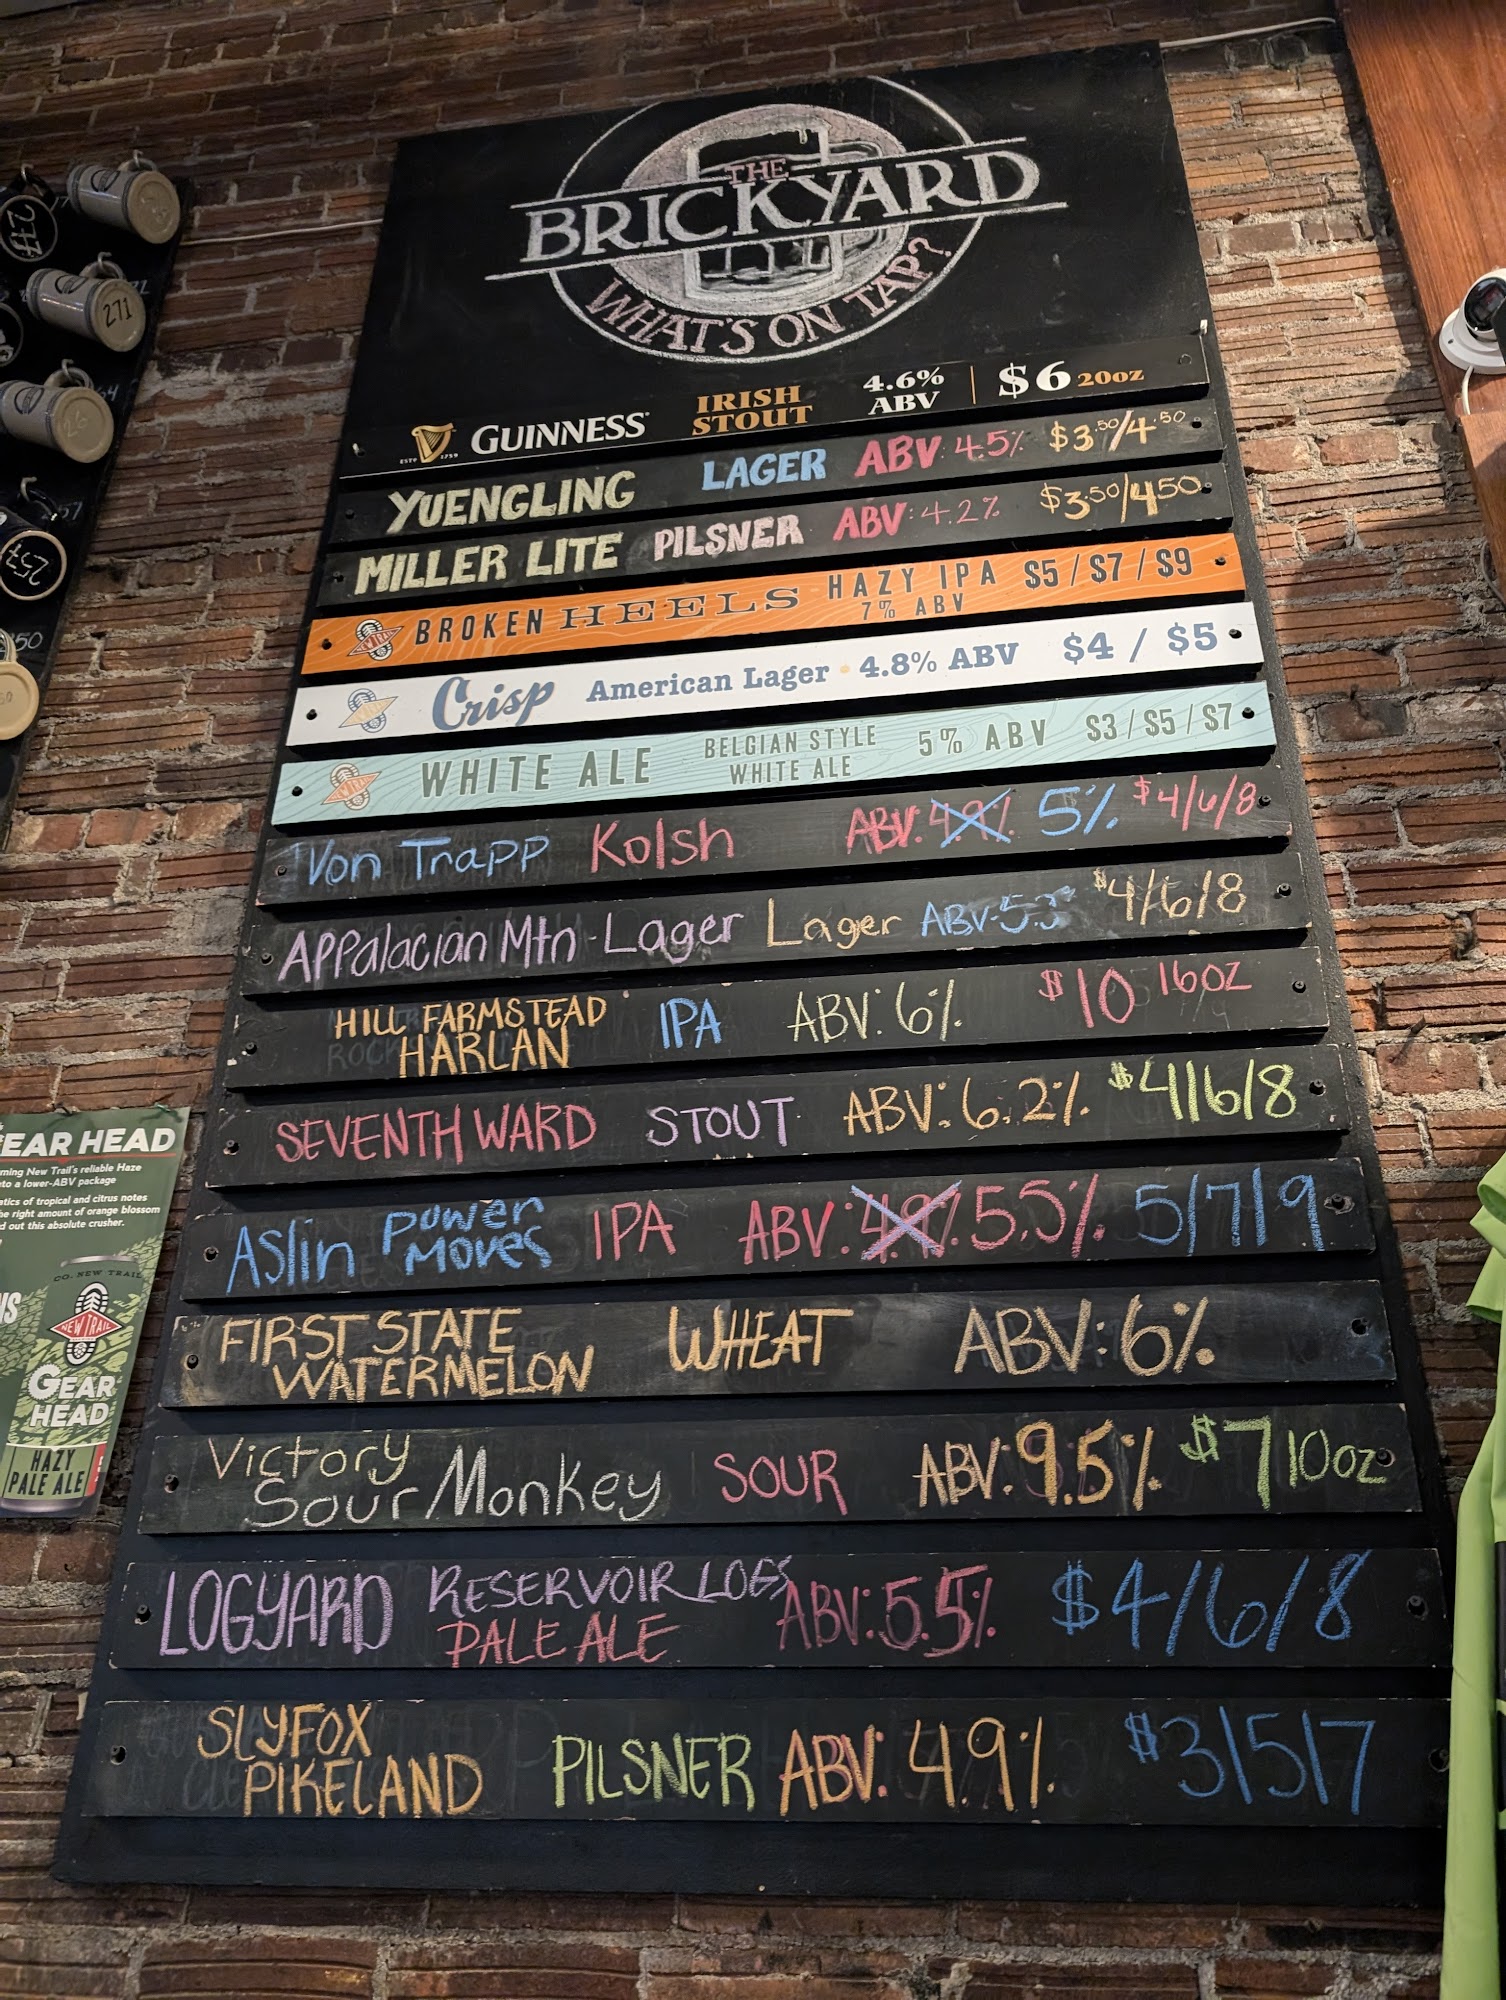 THE
BRICKYARD
WHAT'S ON TAP?
ESTD 1759 GUINNESS IRISH STOUT 4.6% ABV | $6 20oz
YUENGLING LAGER ABV 4.5% $3.50/4.50
MILLER LITE PILSNER ABV: 4.2% $3.50/4.50
NEW TRAIL BROKEN HEELS HAZY IPA 7% ABV $5/$7/$9
Crisp American Lager • 4.8% ABV $4 / $5
WHITE ALE BELGIAN STYLE WHITE ALE 5% ABV $3/$5/$7
Von Trapp Kolsh ABV: 4.9% 5% $4/6/8
Appalacian Mtn-Lager Lager ABV: $4/6/8
HILL FARMSTEAD HARLAN IPA ABV: 6% $10 16oz
SEVENTH WARD STOUT ABV: 6.2% $4/6/8
Aslin Power Moves IPA ABV: 4.9% 5.5% 5/7/9
FIRST STATE WATERMELON WHEAT ABV: 6%
Victory Sour/Monkey SOUR ABV: 9.5% $7 10oz
LOGYARD RESERVOIR LOGS PALE ALE ABV: 5.5% $4/6/8
SLYFOX PIKELAND PILSNER ABV: 4.9% $3/5/7
277
271
26
257
EAR HEAD
ming New Trail's reliable Haze
to a lower-ABV package
atics of tropical and citrus notes
he right amount of orange blossom
d out this absolute crusher.
CO. NEW TRAIL
NEW TRAIL
GEAR
HEAD
HAZY
PALE ALE